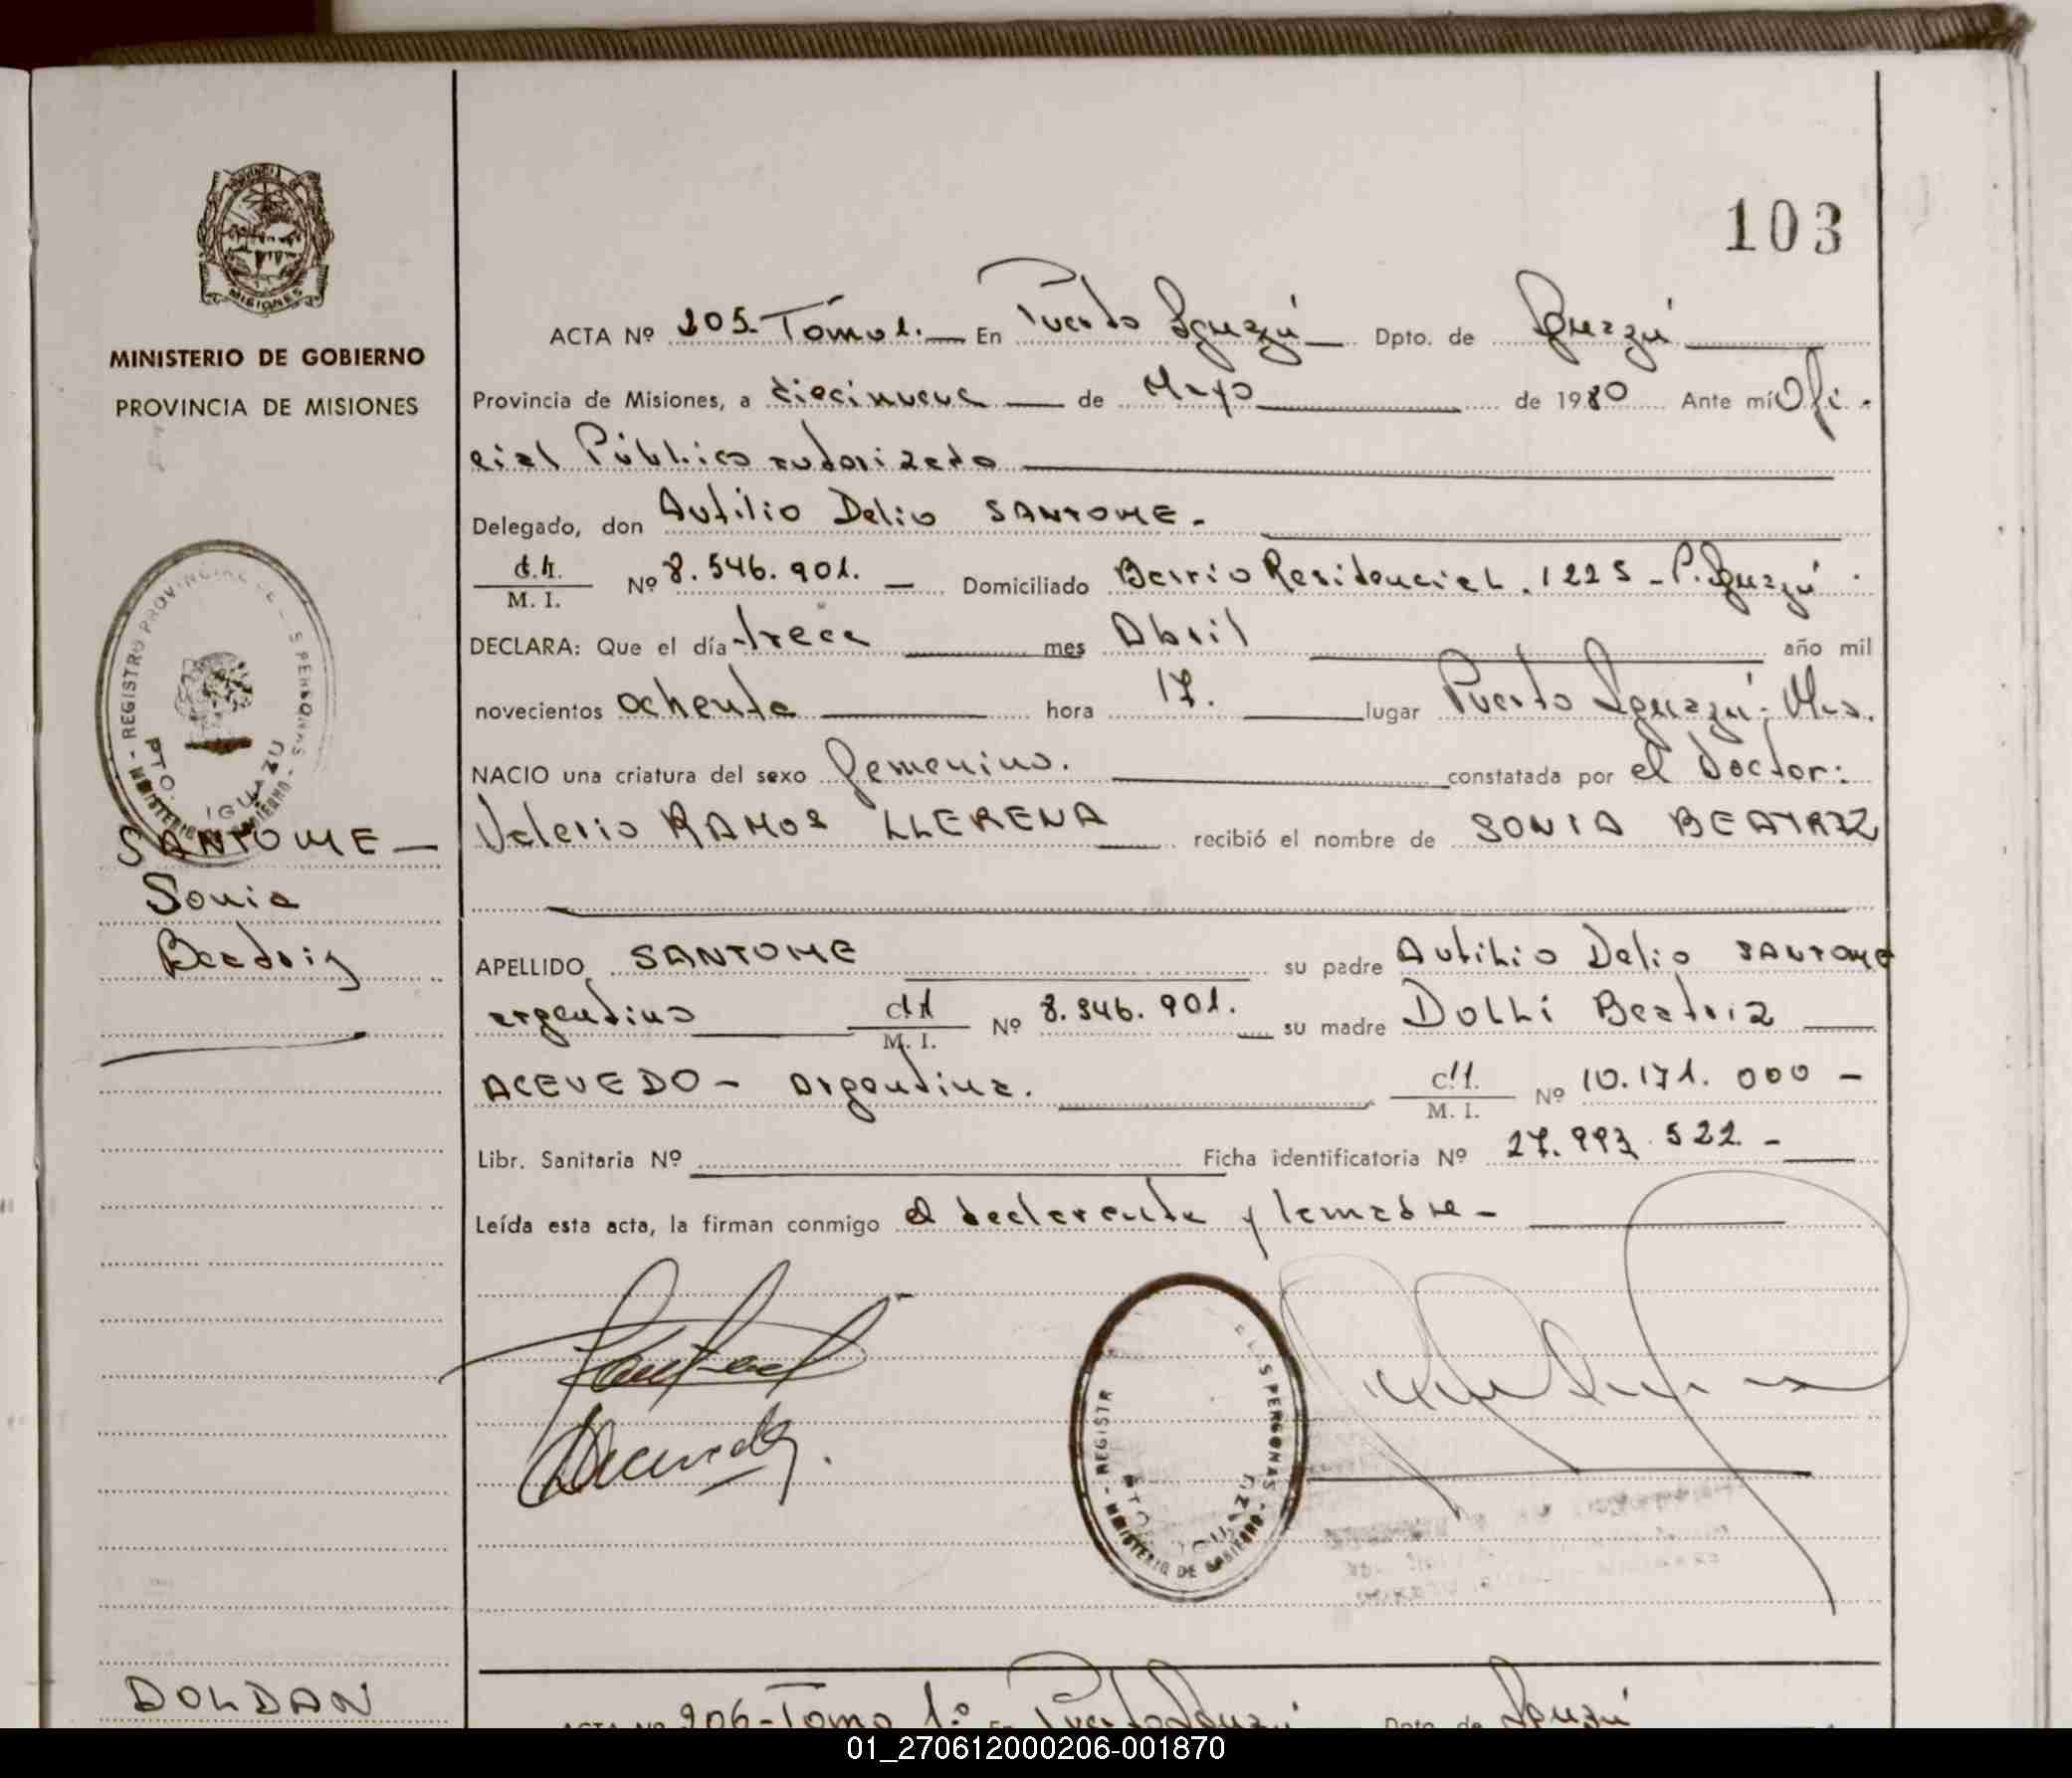 103
MISIONES
MINISTERIO DE GOBIERNO
PROVINCIA DE MISIONES
ACTA Nº 205. Tomo 1. En Puerto Iguazú Dpto. de Iguazú
Provincia de Misiones, a diecinueve de Mayo de 1980 Ante mí Ofi-
cial Público autorizado
Delegado, don Autilio Delio SANTOME.
d.n. M. I. Nº 8.546.901. Domiciliado Barrio Residencial. 122 S - P. Iguazú.
DECLARA: Que el día trece mes Abril año mil
novecientos ochenta hora 17. lugar Puerto Iguazú, Mis.
NACIO una criatura del sexo femenino. constatada por el Doctor:
Valerio RAMOS LLERENA recibió el nombre de SONIA BEATRIZ
APELLIDO SANTOME su padre Autilio Delio SANTOME
argentino M. I. Nº 8.546.901. su madre DOLLI Beatriz
ACEVEDO - Argentina. M. I. Nº 10.171.000 -
Libr. Sanitaria Nº Ficha identificatoria Nº 27.993.522 -
Leída esta acta, la firman conmigo el declarante y la madre -
- REGISTRO PROVINCIAL DE L S PERSONAS -
PTO. IGUAZU
MINISTERIO DE GOBIERNO
SANTOME -
Sonia
Beatriz
Acevedo.
- REGISTR
E L S PERSONAS -
PTO. IGUAZU
MINISTERIO DE GOBIERNO
DOLDAN
ACTA Nº 206 - Tomo 1.º En Puerto Iguazú Dpto. de Iguazú
01_270612000206-001870